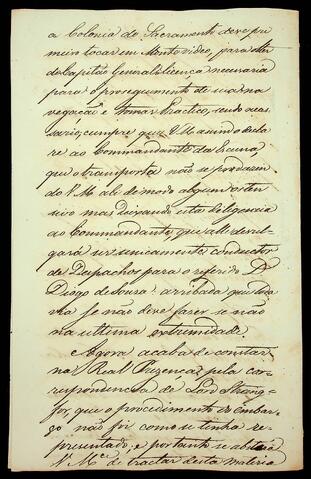 a Colonia do Sacramento deve pri
meiro tocar em Montevideo, para obter
do Capitão General a licença necessaria
para o proseguimento de sua na
vegação e tomar Practico, sendo neces
sario, cumpre que V M assim o decla
re ao Commandante da Escuna,
que o transporta não se fazendo
V. M. ali de modo algum osten
sivo mas deixando esta deligencia
ao Commandante, que all
gará ser unicamente conductor
de Despachos para o referido D.
Diogo de Souza: arribada que toda
via se não deve fazer se não
na ultima extremidade.
Agora acaba de constar
na Real Prezença pela cor
respondencia de Lord Strang-
for, que o procedimento do embar
go não foi como se tinha re
presentado, e portanto se absterá
V. M.ce de tractar desta materia